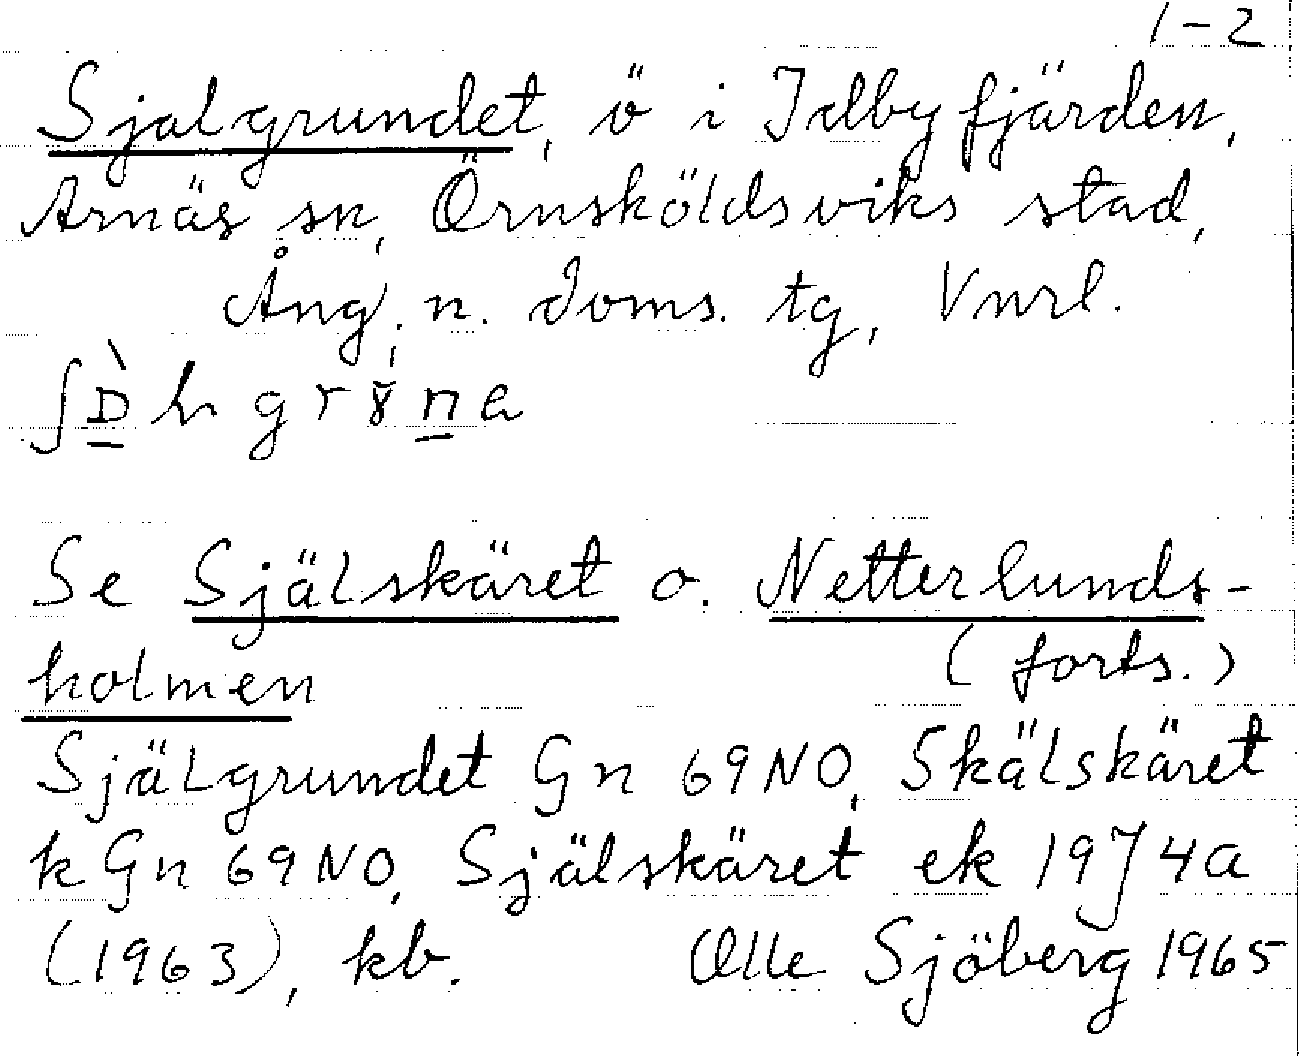 1-2
Sjalgrundet, ö i Idbyfjärden,
Arnäs sn, Örnsköldsviks stad,
Ång. n. doms. tg, Vnrl.
Se Själskäret o. Netterlunds-
(forts.)
holmen
Själgrundet Gn 69NO, Skälskäret
k Gn 69NO, Själskäret ek 19J4a
(1963), kb. Olle Sjöberg 1965